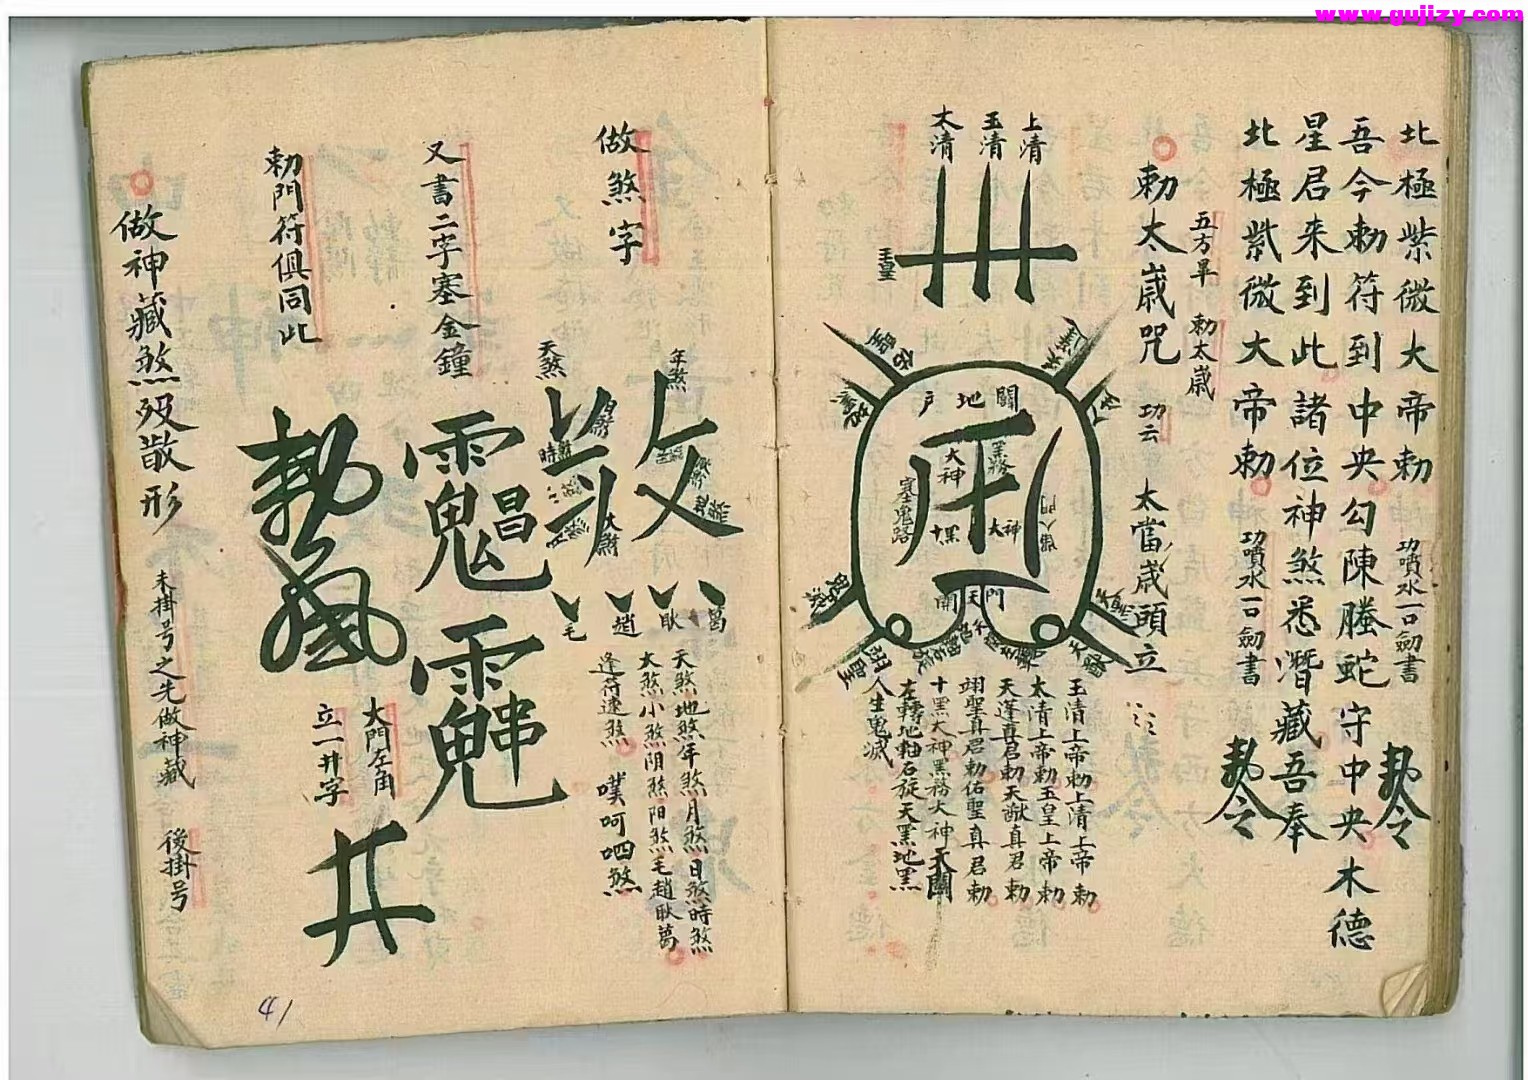 www.gujizy.com
北極紫微大帝勅 功噴水一口劍書 勅令
吾今勅符到中央勾陳螣蛇守中央木德
星君来到此諸位神煞悉潛藏吾奉
北極紫微大帝勅 功噴水一口劍書 勅令
五方旱 勅太歲
勅太歲咒 功云 太當歲頭立
上清
玉清
太清
玉皇
關地戶
大神
黑務
塞鬼路
十黑
大神
開天門
玉清上帝勅上清上帝勅
太清上帝勅玉皇上帝勅
天蓬真君勅天猷真君勅
翊聖真君勅佑聖真君勅
十黑大神黑務大神天關
左轉地軸右旋天黑地黑
人生鬼滅
做煞字
年煞
天煞
大煞
葛
耿
趙
毛
天煞地煞年煞月煞日煞時煞
大煞小煞阴煞阳煞毛趙耿葛
逢符速煞 噗呵呬煞
又書二字塞金鐘
大門左角
立一井字
井
勅門符俱同此
做神藏煞歿散形
未掛号之先做神藏 後掛号
41